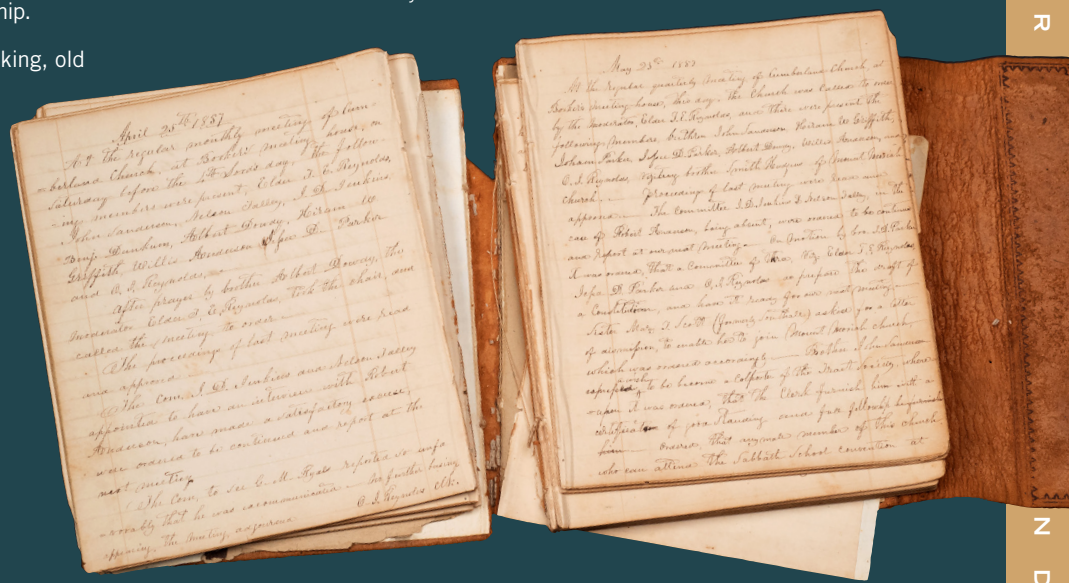 hip.
king, old
April 25th 1857
At the regular monthly meeting of Cum-
berland Church, at Booker's meeting house, on
Saturday before the 4th Lord's day, the follow-
ing members were present, Elder T. E. Reynolds,
John Sanderson, Nelson Talley, J. D. Jenkins
Benjn Dunkum, Albert Dowdy, Hiram W
Griffith, Willis Amonson, John D. Parker
and O. J. Reynolds,
After prayer by brother Albert Dowdy, the
Moderator Elder T. E. Reynolds, took the chair, and
called the meeting to order
The proceedings of last meeting were read
and approved
The Com. J. D. Jenkins and Nelson Talley
appointed to have an interview with Robert
have made a satisfactory
were ordered to be continued and report at the
next meeting.
The Com. to see C. M. reported so unfa
vorably that he was excommunicated no further busing
appearing, the meeting adjourned
O. J. Reynolds Clk.
May 23rd
At the regular quarterly meeting of Cumberland Church, at
Booker's meeting house, this day, the Church was called to order
by the Moderator, Elder T. E. Reynolds, and there were present the
following members, brethren John Sanderson, Hiram W Griffith,
Parker, D. Parker, Albert Dowdy, Willis and
O. J. Reynolds, visiting brother Smith of Mount Moriah
Church. Proceedings of last meeting were read and
approved The Committee J. D. Jenkins & Nelson Talley, in the
case of Robert being absent, were ordered to be continued
and report at our next meeting. On motion by bro. J. D. Parker
it was ordered, that a Committee of three, Viz. Elder T. E. Reynolds,
D. Parker and O. J. Reynolds to prepare the draft of
a Constitution, and have it ready for our next meeting
Sister Mary J. Scott (formerly ) asked for a letter
of dismission, to enable her to join Mount Moriah Church,
which was ordered accordingly Brother John Sanderson
to become a colporter of the Tract Society, where
upon it was ordered, that the Clerk furnish him with a
certificate of good standing and full fellowship
him ordered, that any male member of this church
who can attend the Sabbath School convention at
R
N
D